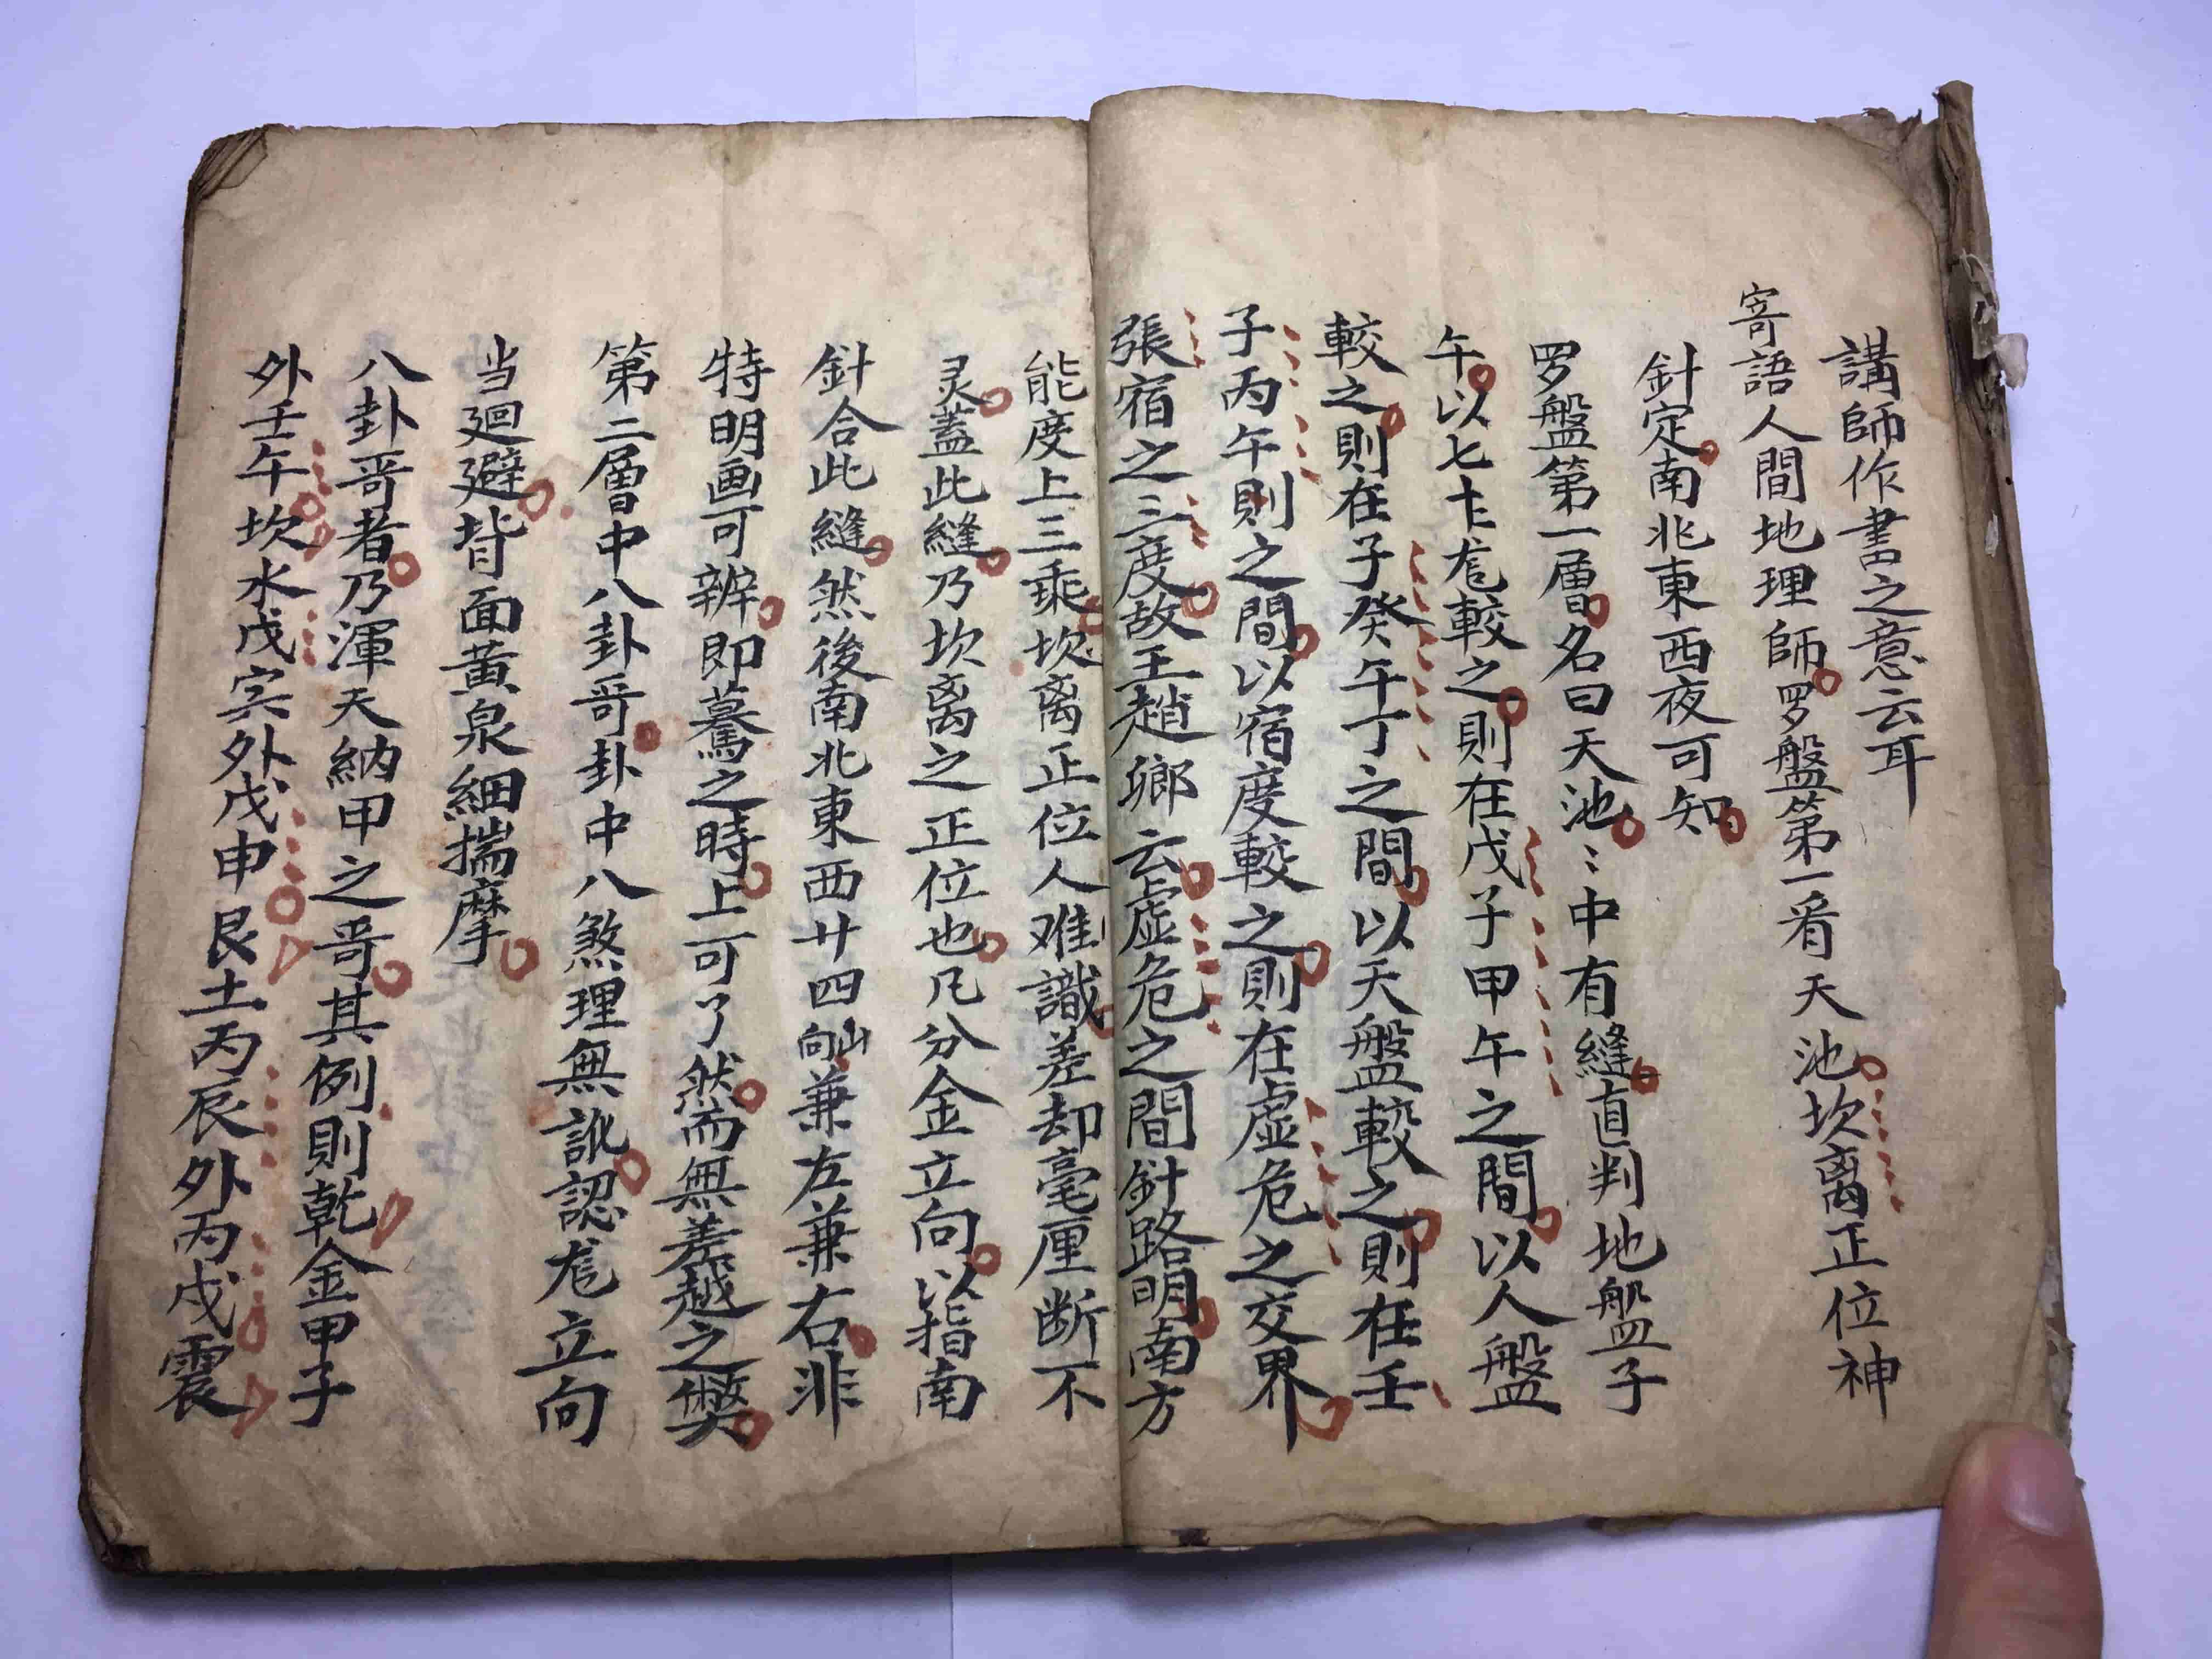 講師作書之意云耳
寄語人間地理師罗盤第一看天池坎离正位神
針定南北東西夜可知
罗盤第一層名曰天池〻中有縫直判地盤子
午以七十龙較之則在戊子甲午之間以人盤
較之則在子癸午丁之間以天盤較之則在壬
子丙午則之間以宿度較之則在虛危之交界
張宿之三度故王趙鄉云虛危之間針路明南方
能度上三乘坎离正位人难識差却毫厘断不
灵蓋此縫乃坎离之正位也凡分金立向以指南
針合此縫然後南北東西廿四山向兼左兼右非
特明画可辨即驀之時上可了然而無差越之弊
第二層中八卦哥卦中八煞理無訛認龙立向
当迴避背面黃泉細揣摩
八卦哥者乃渾天納甲之哥其例則乾金甲子
外壬午坎水戊寅外戊申艮土丙辰外丙戌震